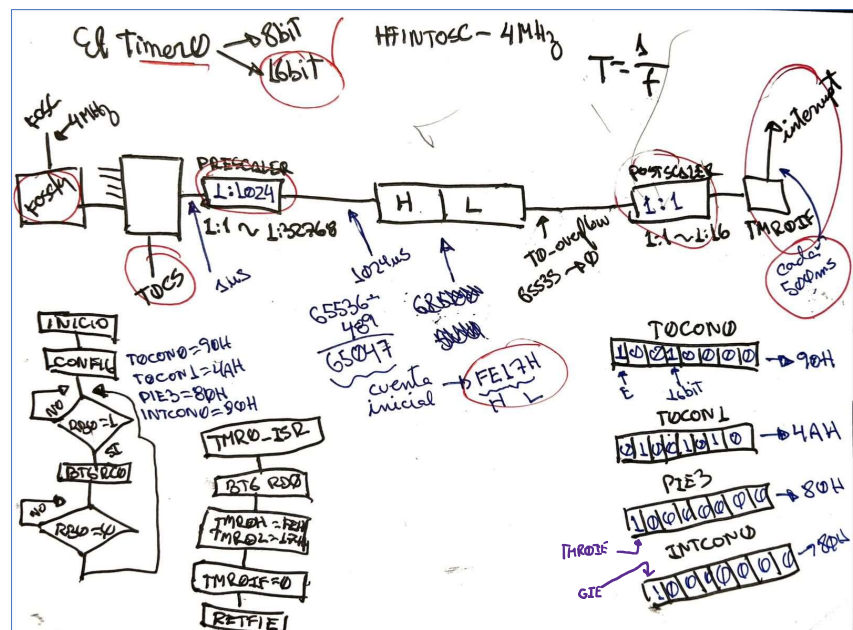 El Timer0 → 8bit
→ 16bit
HFINTOSC - 4MHz
T = 1/f
FOSC
4MHz
FOSC/4
T0CS
1us
PRESCALER
1:1024
1:1 ~ 1:32768
1024us
H L
T0_overflow
65535 → 0
POSTSCALER
1:1
1:1 ~ 1:16
interrupt
TMR0IF
cada
500ms
65536-
489
65047
cuenta
inicial
FE17H
H L
INICIO
CONFIG
NO
RB0=1
SI
BTG RC0
NO
T0CON0=90H
T0CON1=4AH
PIE3=80H
INTCON0=80H
TMR0_ISR
BTG RD0
TMR0H=FEH
TMR0L=17H
TMR0IF=0
RETFIE
T0CON0
1 0 0 1 0 0 0 0 → 90H
E 16bit
T0CON1
0 1 0 0 1 0 1 0 → 4AH
PIE3
1 0 0 0 0 0 0 0 → 80H
TMR0IE
INTCON0
1 0 0 0 0 0 0 0 → 80H
GIE